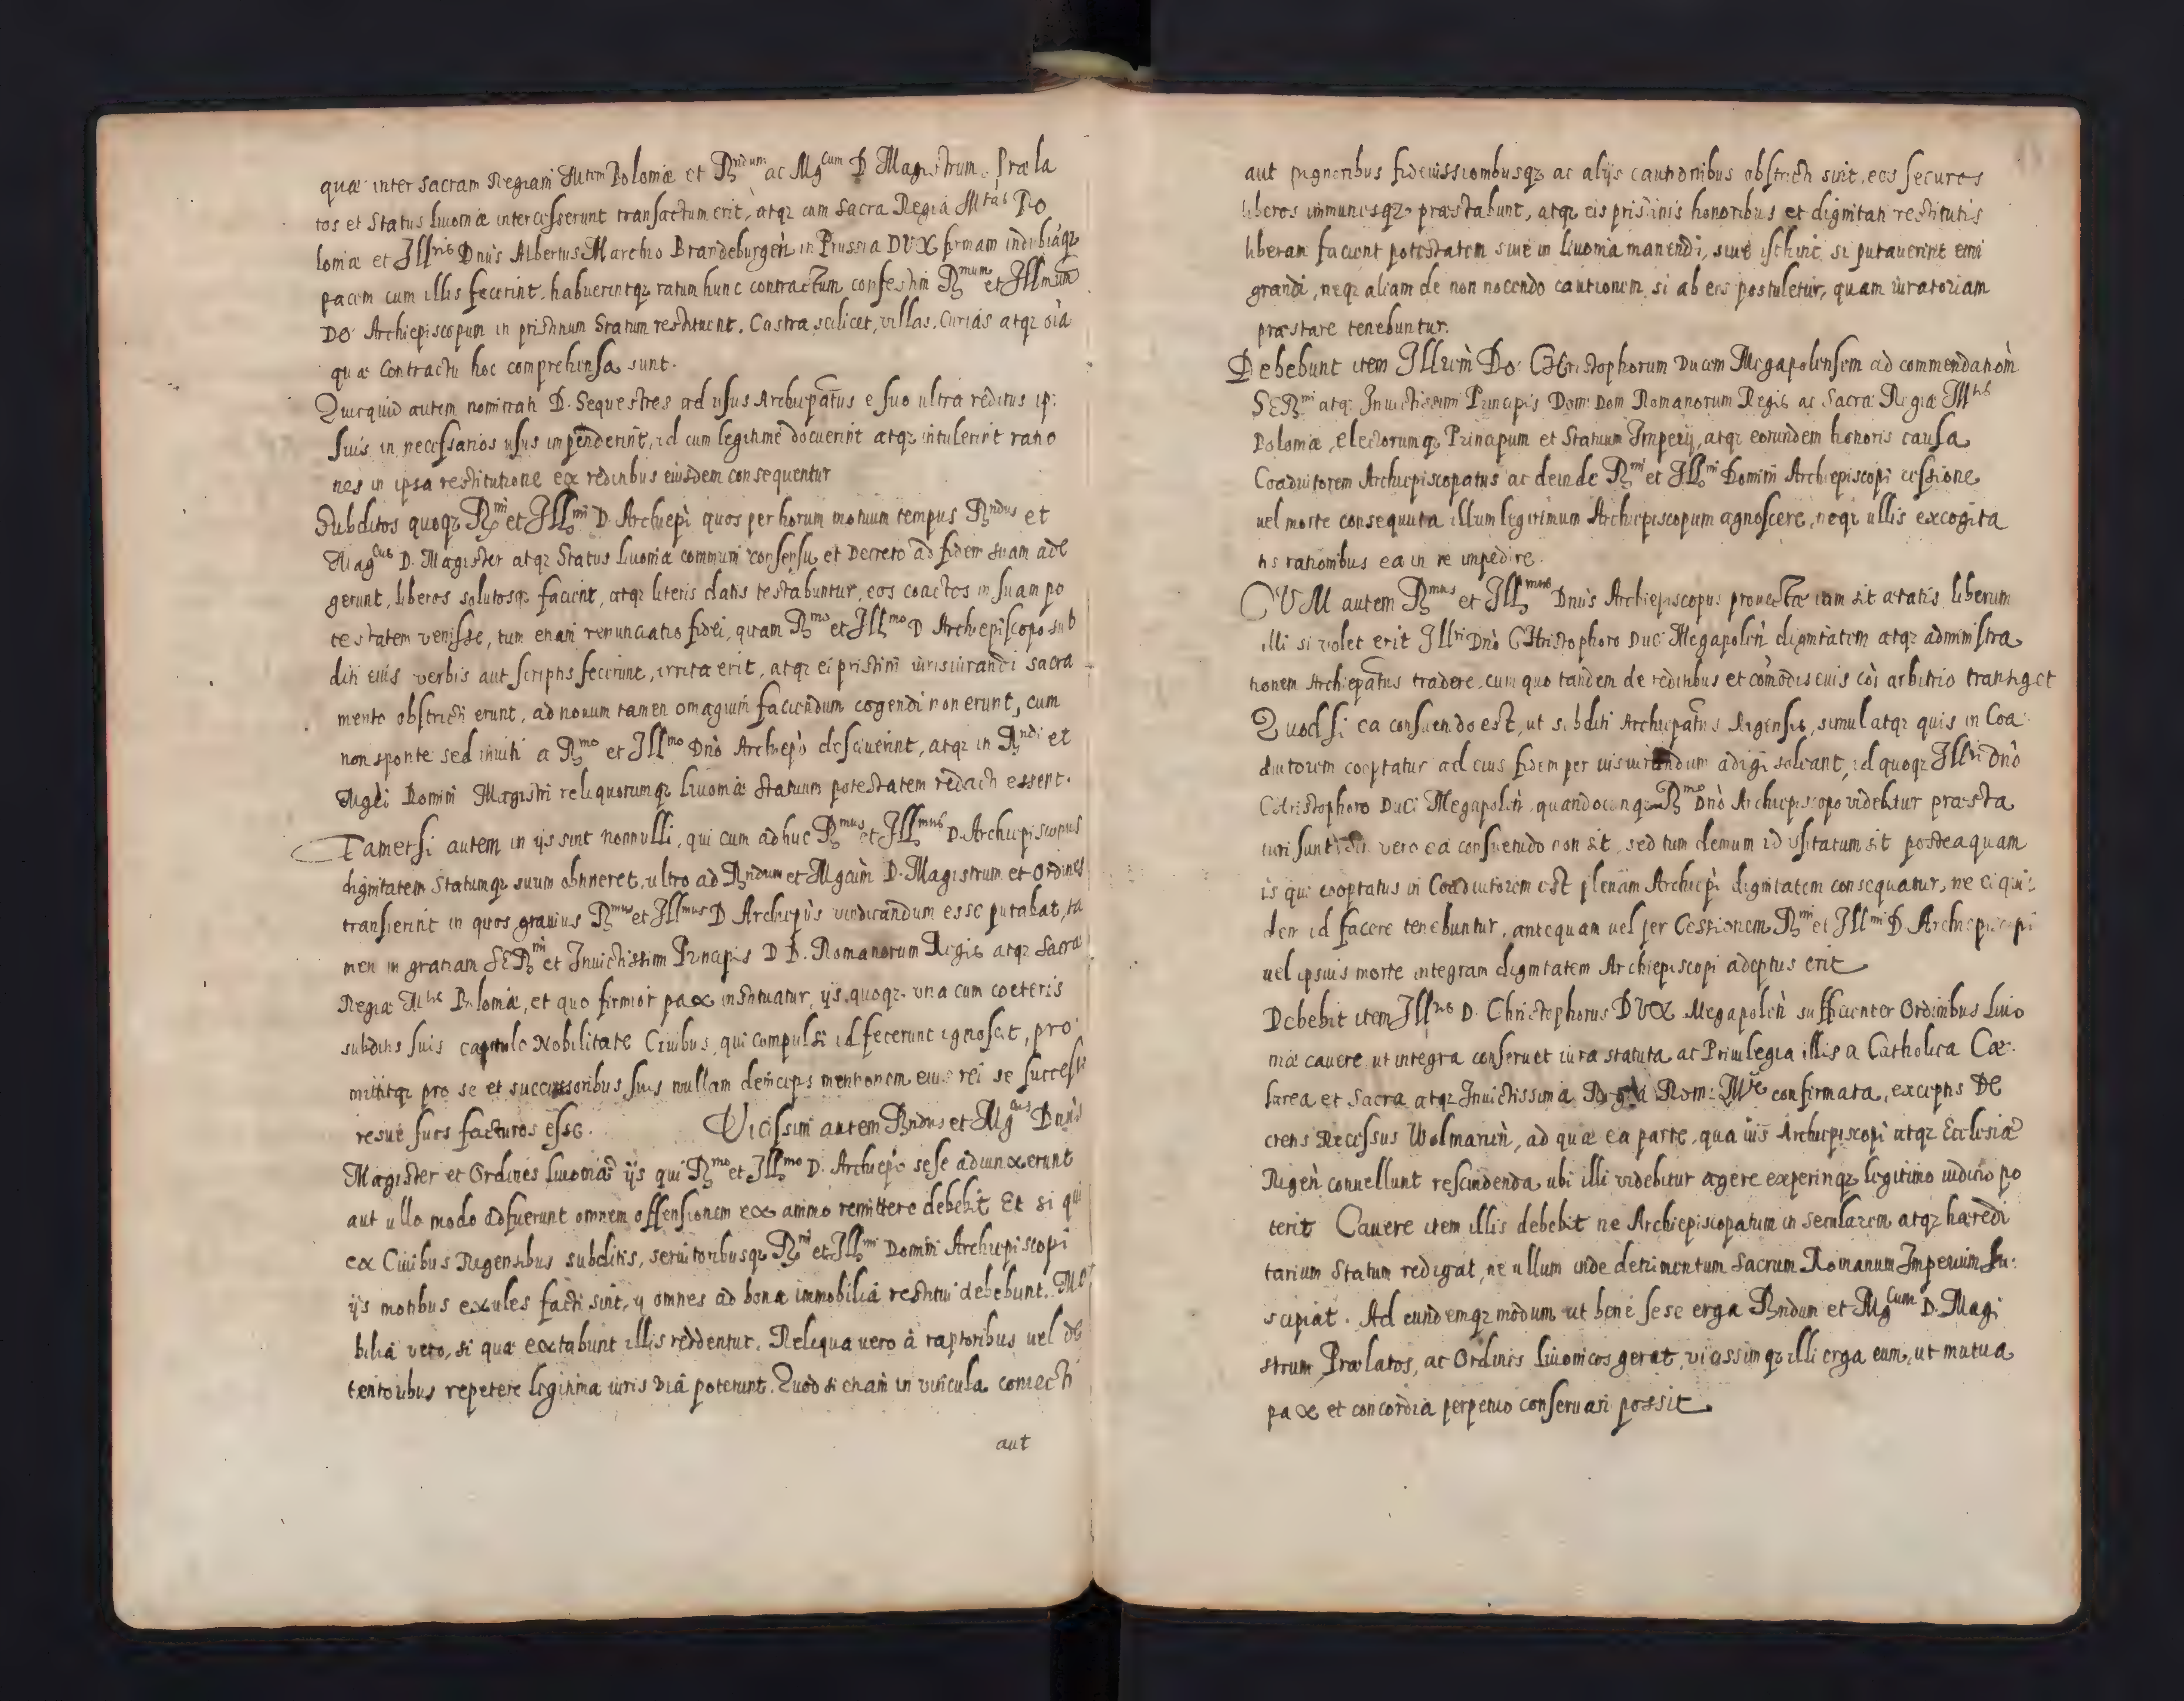 quæ inter sacram Regiam Mtem Poloniæ et Rndum ac Mgcum D Magistrum. Præla
tos et Status Liuoniæ intercesserunt transactum erit, atqz cum Sacra Regia Mtás Po
loniæ et Illris Dnus Albertus Marchio Brandeburgeñ in Prussia DVX firmam indubiáqz
pacem cum illis fecerint. habuerintqz ratum hunc contractum confestim Rmum et Illmum
Do: Archiepiscopum in pristinum Statum restituent. Castra scilicet, villas, Curias atqz oia
quæ Contractu hoc comprehensa sunt.
Quicquid autem nominati D. Sequestres ad usus Archiepatus e suo ultra reditus ip:
suis in necessarios usus impenderint, id cum legitime docuerint atqz intulerint ratio
nes in ipsa restitutione ex reditibus eiusdem consequentur
Subditos quoqz Rmi et Illmi D. Archiepi quos per horum motuum tempus Rndus et
Magcus D. Magister atqz Status Liuoniæ communi consensu et Decreto ad fidem suam ade
gerunt, liberos solutosqz facient, atqz literis datis testabuntur, eos coactos in suam po
testatem venisse, tum etiam renunciatio fidei, quam Rmo et Illmo D Archiepiscopo sub
diti eius verbis aut scriptis fecerint, irrita erit, atqz ei pristini iurisiurandi sacra
mento obstricti erunt, ad nouum tamen omagium faciendum cogendi non erunt, cum
non sponte sed inuiti a Rmo et Illmo Dno Archiepo desciuerint, atqz in Rndi et
Mgci Domini Magistri reliquorumqz Liuoniæ statuum potestatem redacti essent.
Tametsi autem in ijs sint nonnulli, qui cum adhuc Rmus et Illmus D. Archiepiscopus
dignitatem Statumqz suum obtineret, ultro ad Rndum et Mgcum D. Magistrum et Ordines
transierint in quos grauius Rmus et Illmus D Archiepus vindicandum esse putabat, ta
men in gratiam SERmi et Inuictissimi Principis D D. Romanorum Regis atqz Sacræ
Regiæ Mtis Poloniæ, et quo firmior pax instituatur, ijs quoqz vna cum coeteris
subditis suis capitulo Nobilitate Ciuibus, qui compulsi id fecerunt ignoscit, pro
mittitqz pro se et successoribus suis nullam deinceps mentionem eius rei se success
resue suos facturos esse. Vicissim autem Rndus et Mgcus Dnus
Magister et Ordines Liuoniæ ijs qui Rmo et Illmo D. Archiepo sese adiunxerunt
aut ullo modo adfuerunt omnem offensionem ex animo remittere debebit Et si qui
ex Ciuibus Rigensibus subditis, seruitoribusqz Rmi et Illmi Domini Archiepiscopi
ijs motibus exules facti sint, ij omnes ad bona immobilia restitui debebunt. Mo
bilia vero, si quæ extabunt illis reddentur. Reliqua uero à raptoribus uel de
tentoribus repetere legitima iuris viâ poterunt. Quod si etiam in vincula coniecti
aut
aut pignoribus fideiussionibusqz ac alijs cautionibus obstricti sint, eos securos
liberos immunesqz præstabunt, atqz eis pristinis honoribus et dignitati restitutis
liberam facient potestatem siue in Liuonia manendi, siue isthinc si putauerint emi
grandi, neqz aliam de non nocendo cautionem si ab eis postuletur, quam iuratoriam
præstare tenebuntur.
Debebunt item Illrem Do: Christophorum Ducem Megapolensem ad commendationem
SERmi atqz Inuictissimi Principis Dom: Dom Romanorum Regis ac Sacræ Regiæ Mtis
Poloniæ, Electorumqz Principum et Statuum Imperij, atqz eorundem honoris causa
Coadiutorem Archiepiscopatus ac deinde Rmi et Illmi Domini Archiepiscopi cessione
uel morte consequuta illum legitimum Archiepiscopum agnoscere, neqz ullis excogita
tis rationibus ea in re impedire.
CVM autem Rmus et Illmus Dnus Archiepiscopus prouectæ iam sit ætatis liberum
illi si volet erit Illri Dno Christophoro Duci Megapoleñ dignitatem atqz administra
tionem Archiepatus tradere. cum quo tandem de reditibus et comodis eius coi arbitrio transiget
Quod si ea consuetudo est, ut subditi Archiepatus Rigensis, simul atqz quis in Coa
diutorem cooptatur ad eius fidem per iusiurandum adigi soleant, id quoqz Illri Dno
Christophoro Duci Megapoleñ. quandocunqz Rmo Dno Archiepiscopo videbitur præsta
turi sunt. vero ea consuetudo non sit, sed tum demum id usitatum sit posteaquam
is qui cooptatus in Coadiutorem est plenam Archiepi dignitatem consequatur, ne ei qui:
dem id facere tenebuntur, antequam uel per Cessionem Rmi et Illmi D. Archiepiscopi
uel ipsius morte integram dignitatem Archiepiscopi adeptus erit
Debebit item Illris D. Christophorus DVX Megapoleñ sufficienter Ordinibus Liuo
niæ cauere ut integra conseruet iura statuta ac Priuilegia illis a Catholica Cæ:
sarea et Sacra atqz Inuictissima Regia Rom: Mte confirmata, exceptis De
cretis Recessus Wolmarien, ad quæ ea parte, qua ius Archiepiscopi atqz Ecclesiæ
Rigeñ conuellunt rescindenda ubi illi videbitur agere expeririqz legitimo iudicio po
terit Cauere item illis debebit ne Archiepiscopatum in secularem atqz hæredi
tarium Statum redigat, ne ullum inde detrimentum Sacrum Romanum Imperium su:
scipiat. Ad eundemqz modum ut bene sese erga Rndum et Mgcum D. Magi
strum Prælatos, ac Ordines Liuonicos gerat, vicissimqz illi erga eum, ut mutua
pax et concordia perpetuo conseruari possit